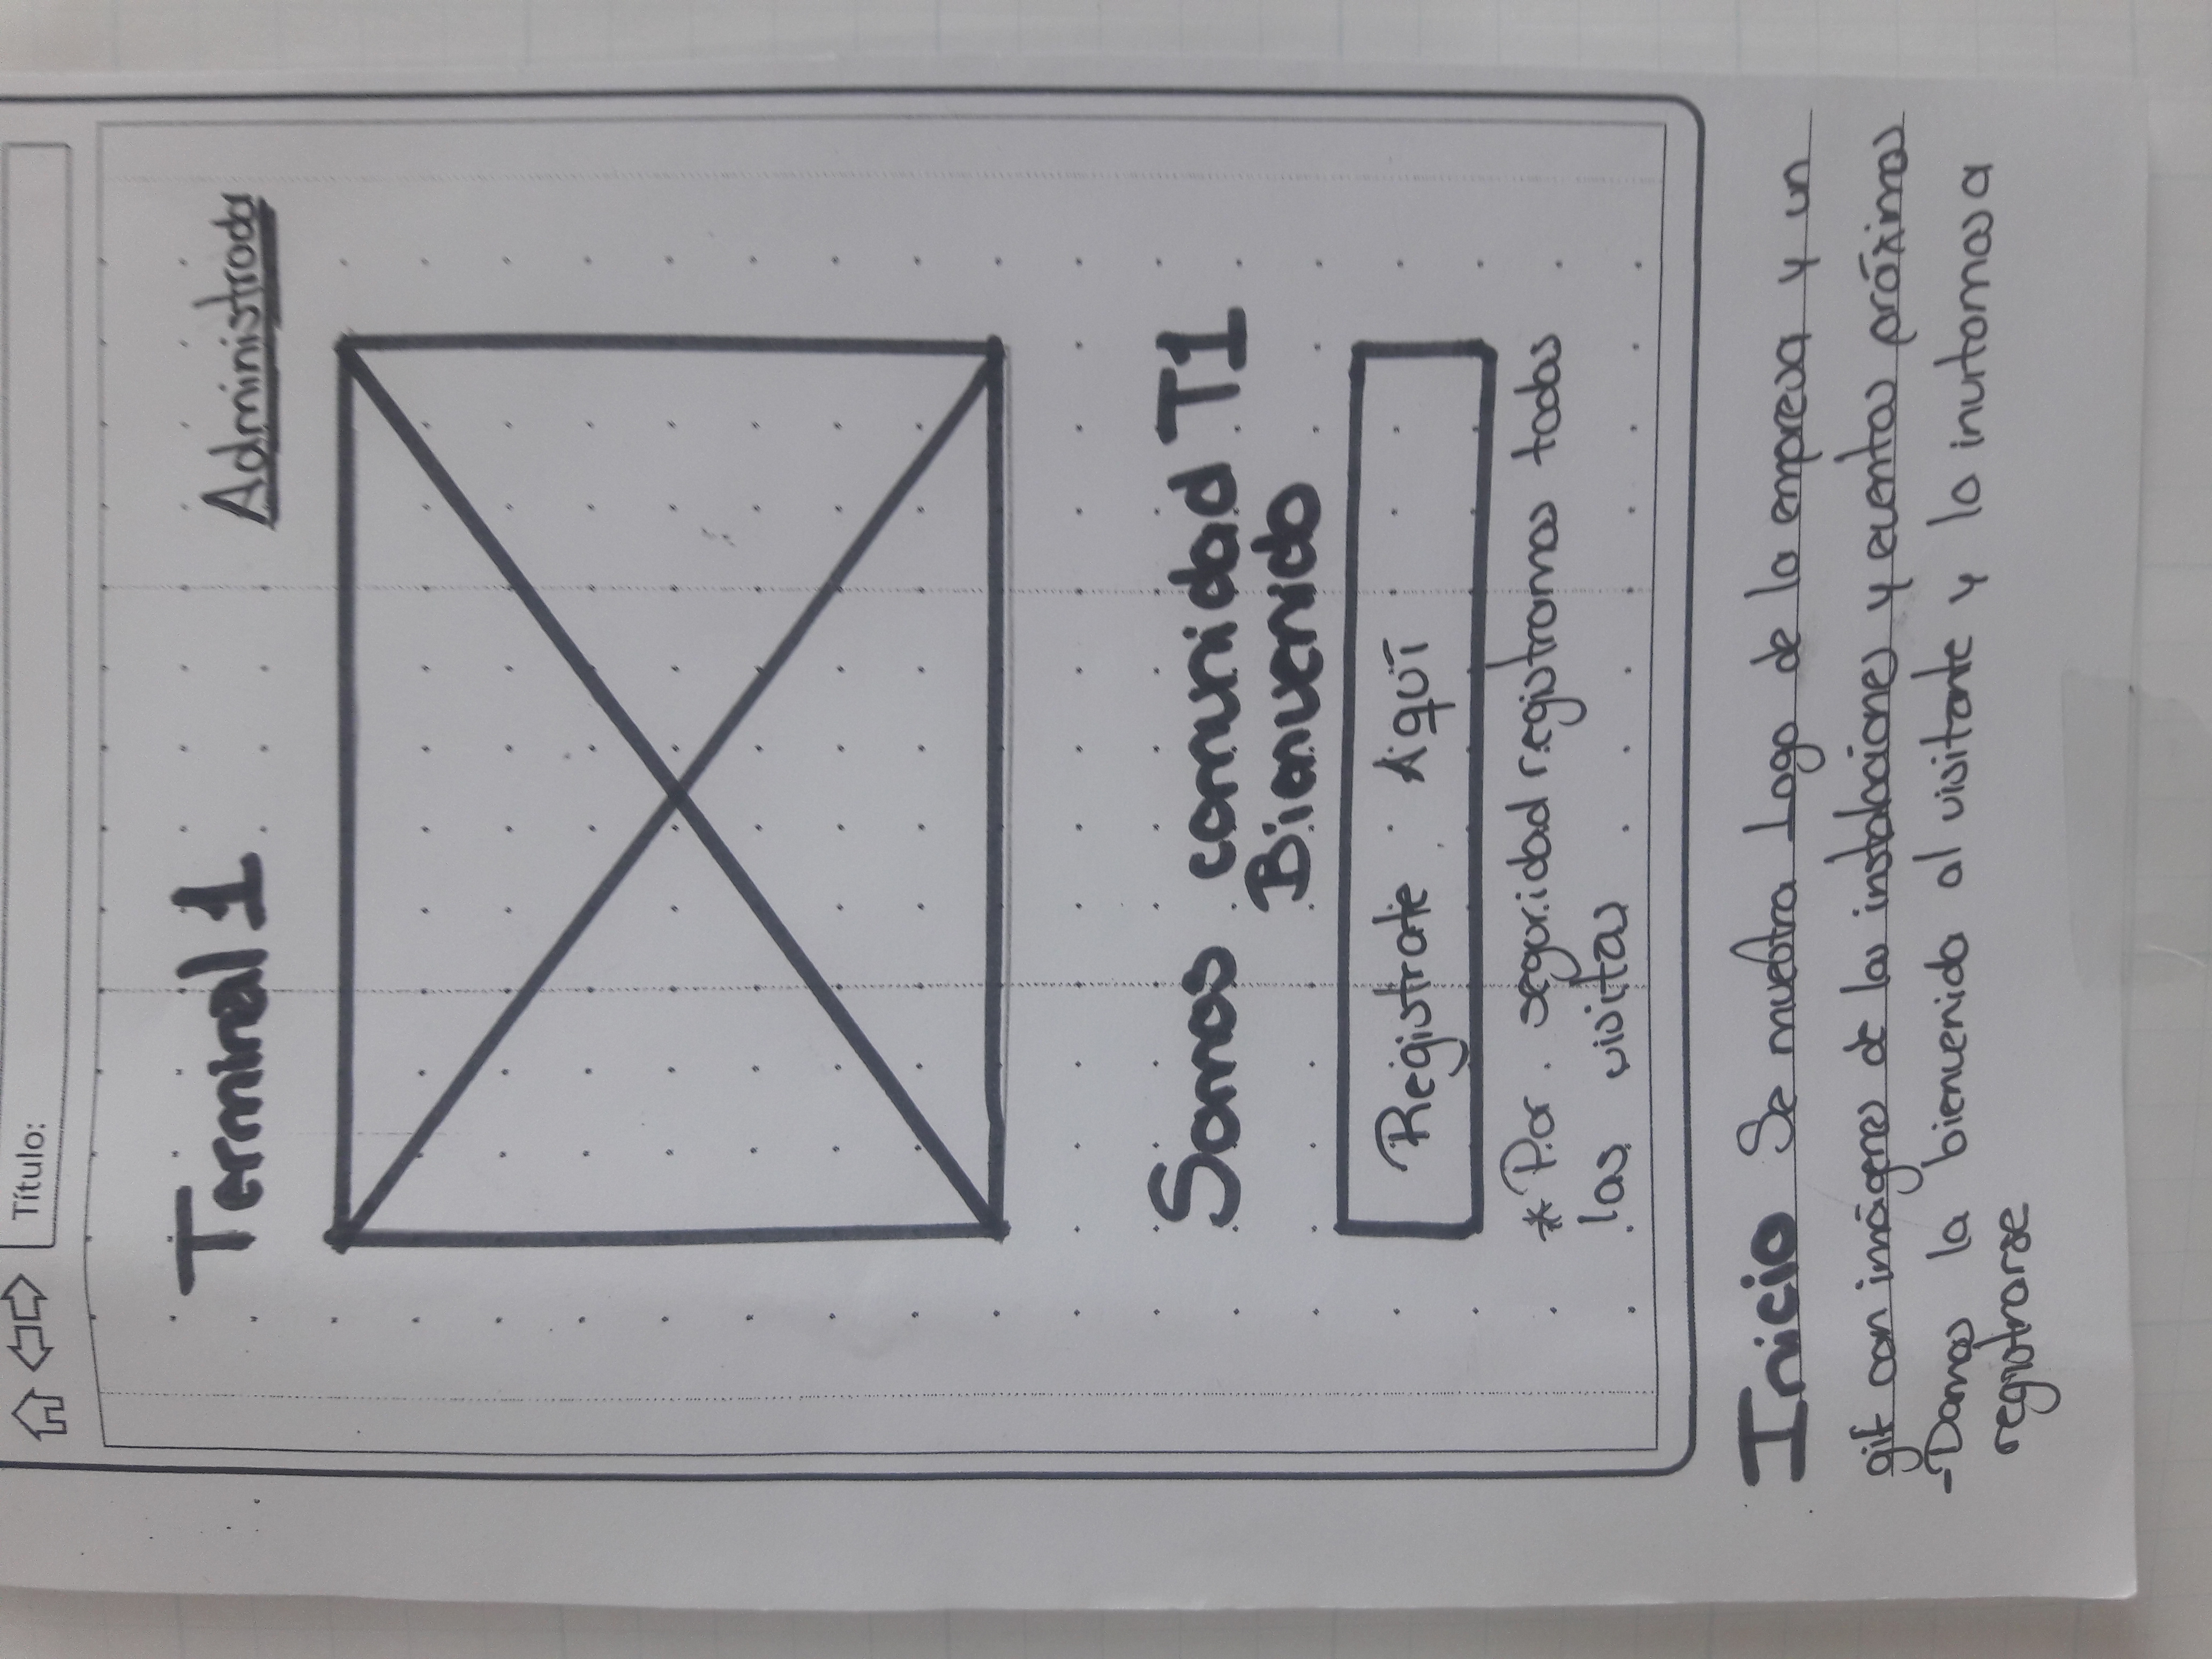 Título:
Terminal 1
Administrado
Somos comunidad T1
Bienvenido
Registrate Aquí
*Por seguridad registramos todas
las visitas
Inicio Se muestra Logo de la empresa y un
gif con imágenes de las instalaciones y eventos próximos
-Damos la bienvenida al visitante y lo invitamos a
registrarse